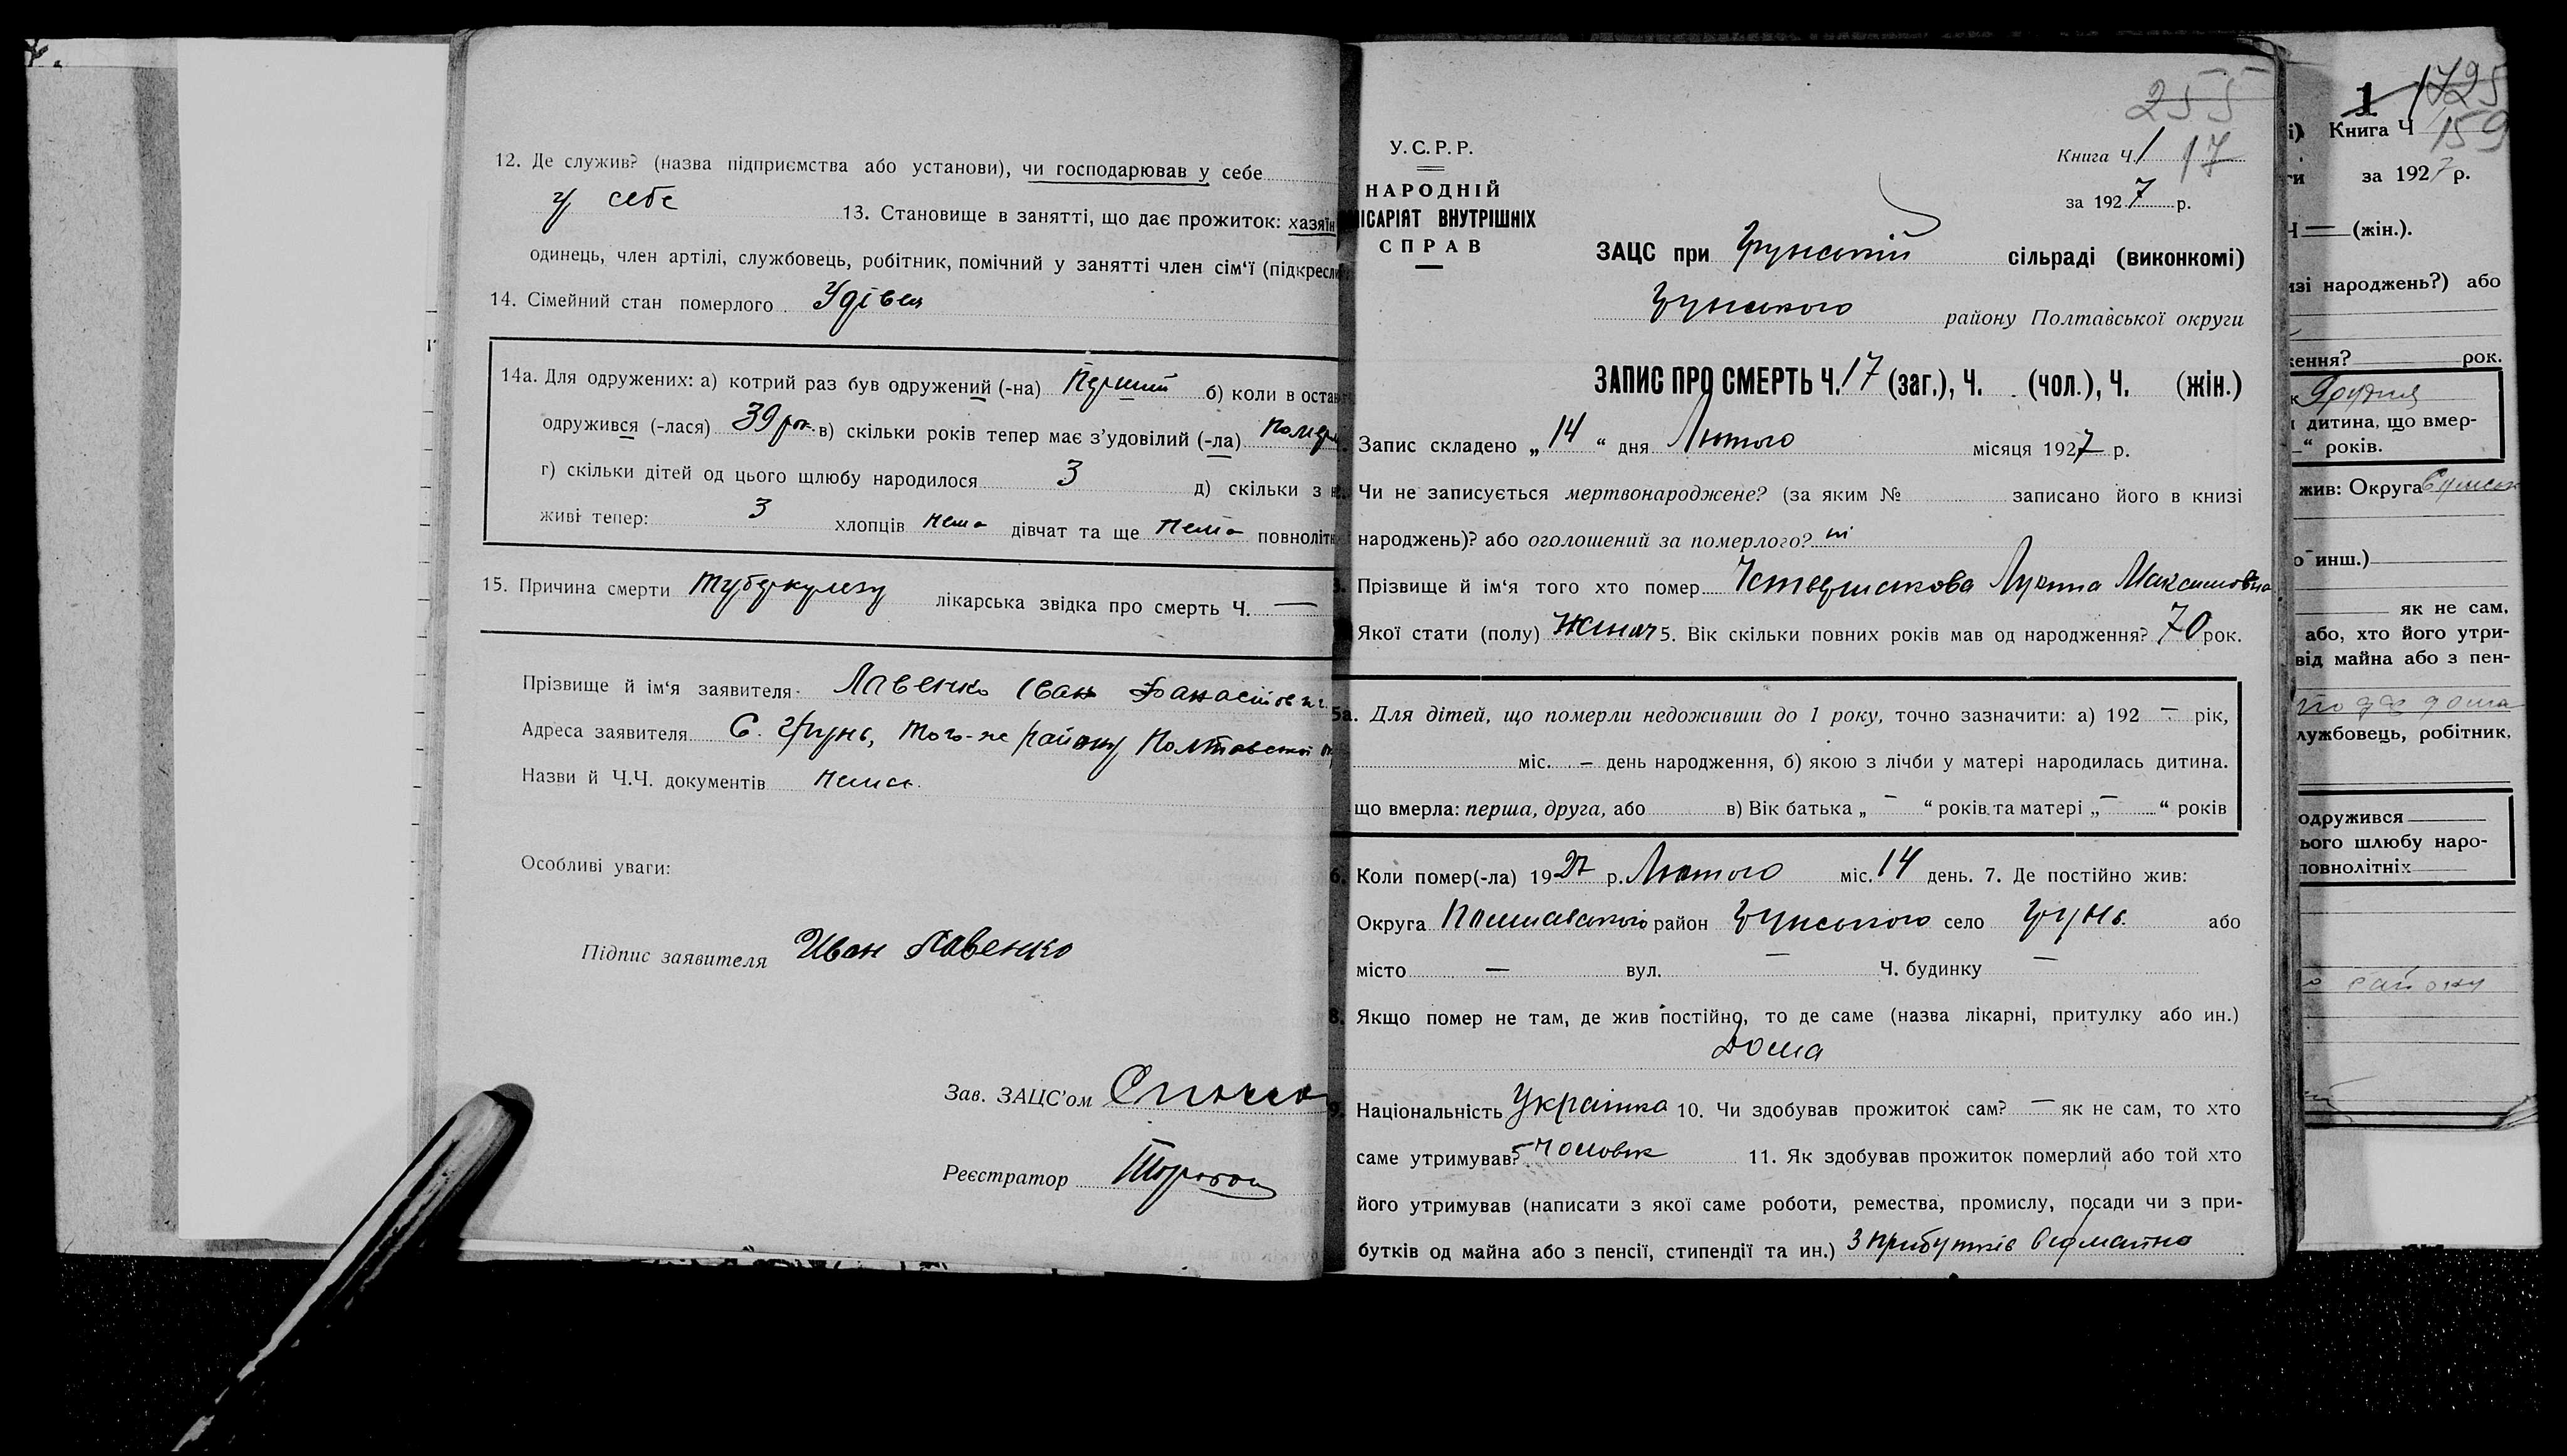 12. Де служив? (назва підприємства або установи), чи господарював у себе
у себе 13. Становище в занятті, що дає прожиток: хазяїн
одинець, член артілі, службовець, робітник, помічний у занятті член сім‘ї (підкресли
14. Сімейний стан померлого Удівея
14а. Для одружених: а) котрий раз був одружений (-на) Перший б) коли в оста
одружився (-лася) 39 рок. в) скільки років тепер має з’удовілий (-ла) помер
г) скільки дітей од цього шлюбу народилося 3 д) скільки з н
живі тепер: 3 хлопців нема дівчат та ще нема повноліт
15. Причина смерти туберкулезу лікарська звідка про смерть Ч. —
Прізвище й ім‘я заявителя Лавенко Іван
Адреса заявителя С. Грунь, того-же району Полтавської
Назви й Ч.Ч. документів нема
Особливі уваги:
Підпис заявителя Иван Лавенко
Зав. ЗАЦС’ом
Реєстратор
255
У.С.Р.Р.
НАРОДНІЙ
ІСАРІЯТ ВНУТРІШНІХ
СПРАВ
Книга Ч. 1 17
за 1927 р.
ЗАЦС при Грунській сільраді (виконкомі)
Грунського району Полтавської округи
ЗАПИС ПРО СМЕРТЬ Ч. 17 (заг.), Ч. (чол.), Ч. (жін.)
Запис складено „14“ дня Лютого місяця 1927 р.
Чи не записується мертвонароджене? (за яким № записано його в книзі
народжень)? або оголошений за померлого? ні
3. Прізвище й ім‘я того хто помер Максимовна
Якої стати (полу) жіноч 5. Вік скільки повних років мав од народження? 70 рок.
5а. Для дітей, що померли недоживши до 1 року, точно зазначити: а) 192 – рік,
міс. – день народження, б) якою з лічби у матері народилась дитина.
що вмерла: перша, друга, або в) Вік батька „ – “ років та матері „ – “ років
6. Коли помер(-ла) 1927 р. Лютого міс. 14 день. 7. Де постійно жив:
Округа Полтавської район Грунського село Грунь або
місто — вул. — Ч. будинку —
8. Якщо помер не там, де жив постійно, то де саме (назва лікарні, притулку або ин.)
Дома
9. Національність Українка 10. Чи здобував прожиток сам? — як не сам, то хто
саме утримував? чоловік 11. Як здобував прожиток померлий або той хто
його утримував (написати з якої саме роботи, ремества, промислу, посади чи з при-
бутків од майна або з пенсії, стипендії та ин.) З прибутків від майна
1 1725
і) Книга Ч 159
ти за 1927 р.
Ч — (жін.).
изі народжень?) або
ення? рок.
к Грудня
дитина, що вмер-
“ років.
жив: Округа
о инш.)
як не сам,
або, хто його утри-
від майна або з пен-
лужбовець, робітник,
одружився
ього шлюбу наро-
повнолітніх
району